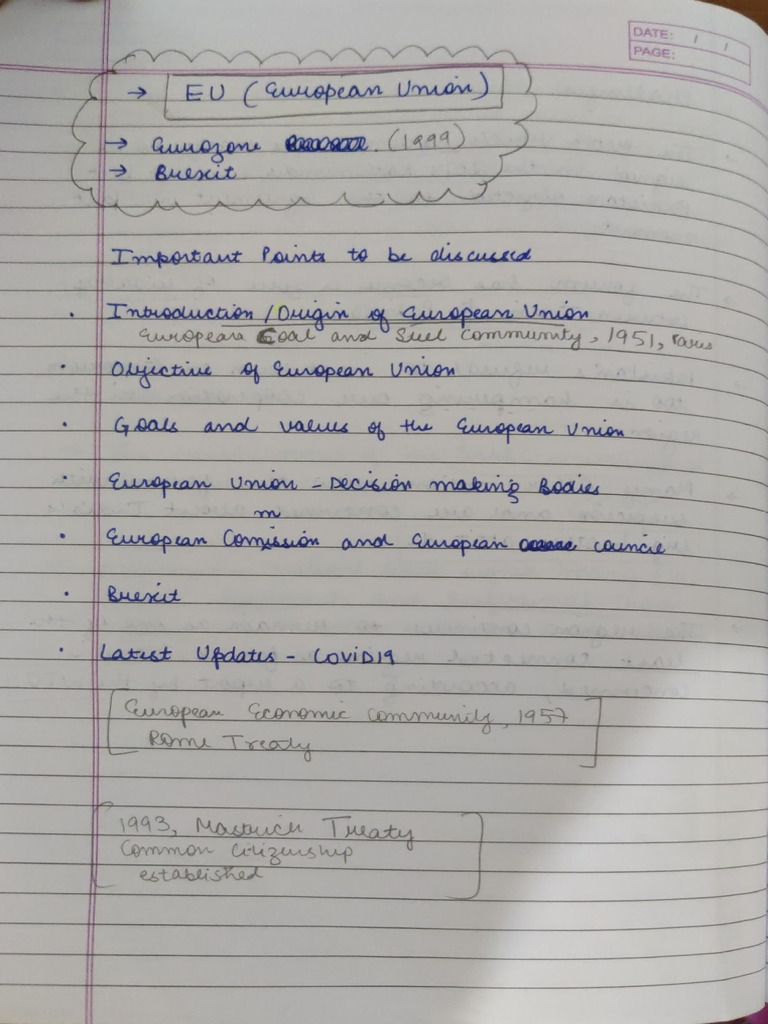 DATE: / /
PAGE:
→ EU (European Union)
→ Eurozone (1999)
→ Brexit
Important Points to be discussed
• Introduction / Origin of European Union
European Coal and Steel Community, 1951, Paris
• Objective of European Union
• Goals and values of the European Union
• European Union - Decision making Bodies
m
• European Comission and European council
• Brexit
• Latest Updates - COVID19
[European Economic Community, 1957
Rome Treaty]
[1993, Mastrich Treaty
Common citizenship
established]